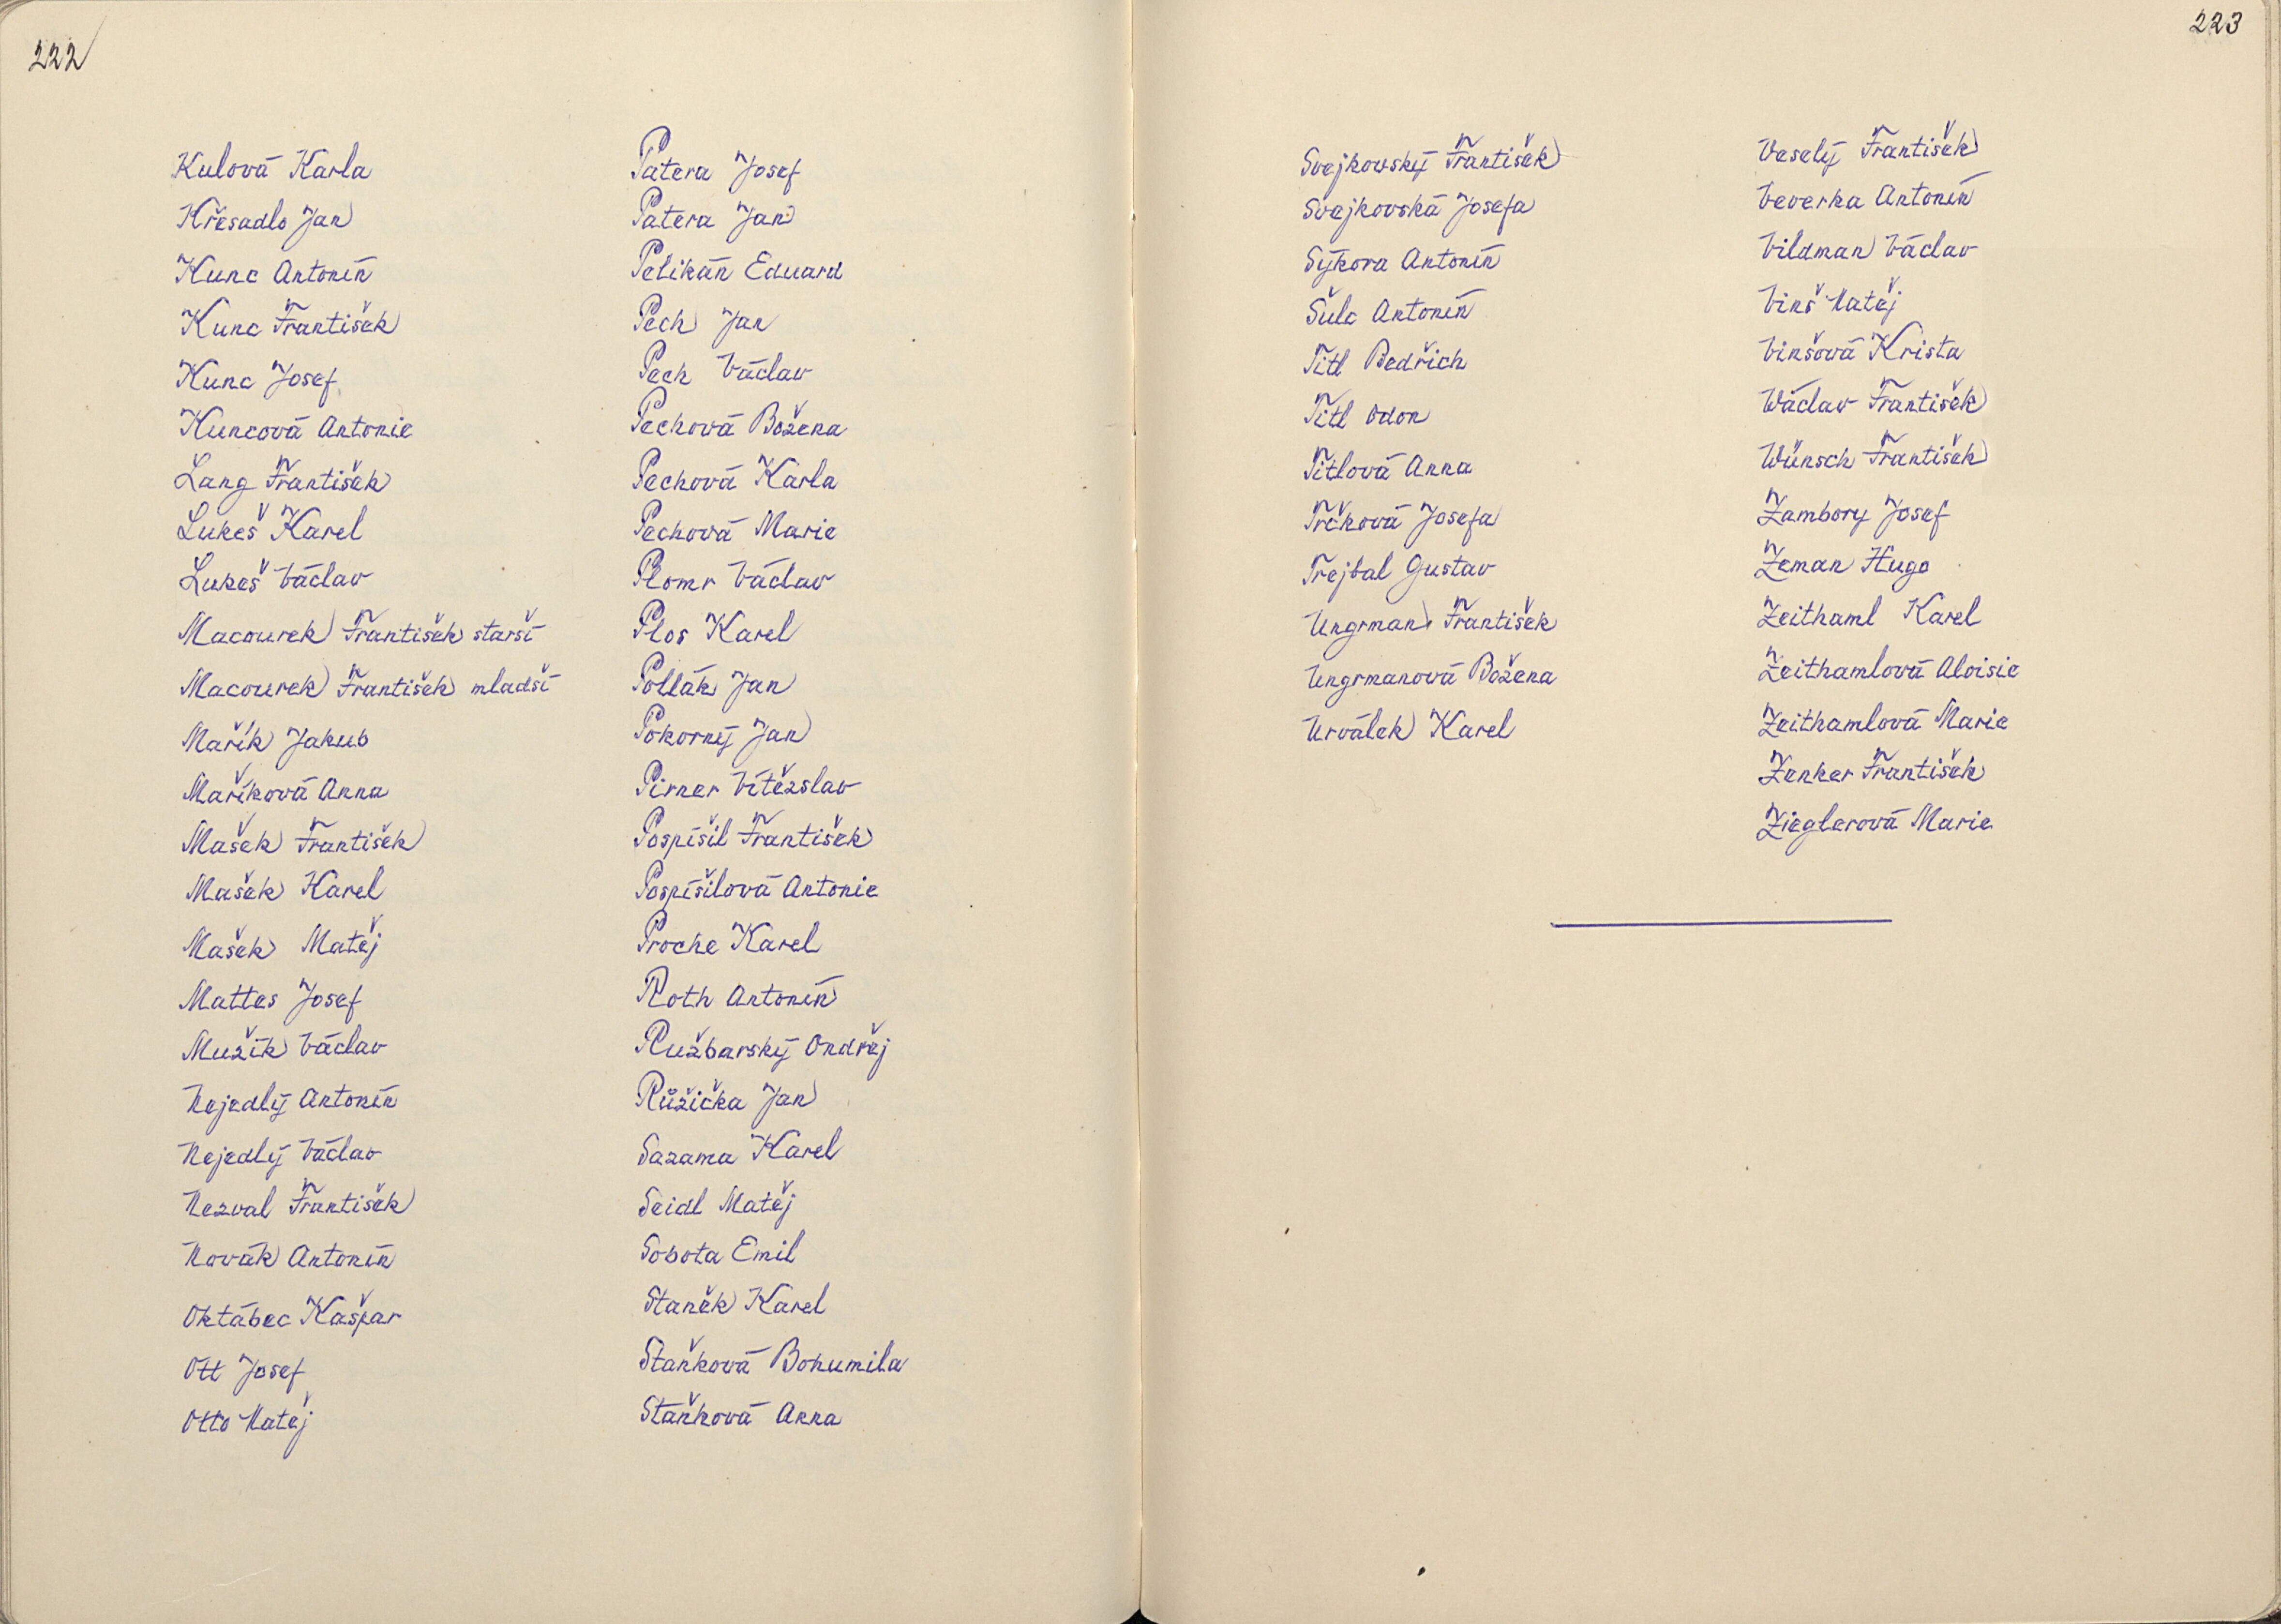 222
Kulová Karla
Křesadlo Jan
Kunc Antonín
Kunc František
Kunc Josef
Kuncová Antonie
Lang František
Lukeš Karel
Lukeš Václav
Macourek František starší
Macourek František mladší
Mařík Jakub
Maříková Anna
Mašek František
Mašek Karel
Mašek Matěj
Mattes Josef
Mužík Václav
Nejedlý Antonín
Nejedlý Václav
Nezval František
Novák Antonín
Oktábec Kašpar
Ott Josef
Otto Matěj
Patera Josef
Patera Jan
Pelikán Eduard
Pech Jan
Pech Václav
Pechová Božena
Pechová Karla
Pechová Marie
Plomr Václav
Plos Karel
Pollák Jan
Pokorný Jan
Pirner Vítězslav
Pospíšil František
Pospíšilová Antonie
Proche Karel
Roth Antonín
Ružbarský Ondřej
Růžička Jan
Sazama Karel
Seidl Matěj
Sobota Emil
Staněk Karel
Staňková Bohumila
Staňková Anna
223
Svejkowský František
Svejkovská Josefa
Sýkora Antonín
Šulc Antonín
Titl Bedřich
Titl Odon
Titlová Anna
Trčková Josefa
Trejbal Gustav
Ungrman František
Ungrmanová Božena
Urválek Karel
Veselý František
Veverka Antonín
Vildman Václav
Vinš Matěj
Vinšová Krista
Wáclav František
Wünsch František
Zambory Josef
Zeman Hugo
Zeithaml Karel
Zeithamlová Aloisie
Zeithamlová Marie
Zenker František
Zieglerová Marie